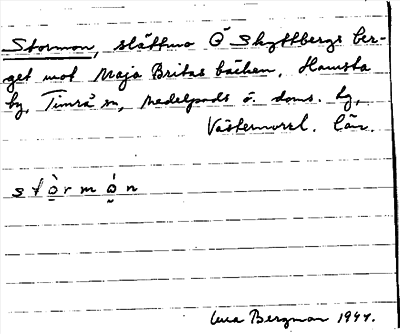 Stormon, slåttmo Ö Skyttbergs ber-
get mot Maja Britas bäcken, Hamsta
by, Timrå sn, Medelpads ö. doms. hg,
Västernorrl. län.
stò̱rmó̰n
Bergman 1944.